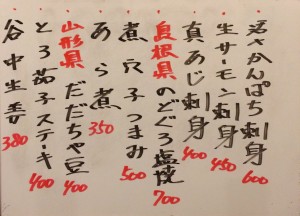 活さかんぱち刺身 600
生サーモン刺身 450
真あじ刺身 400
島根県のどぐろ塩焼 700
煮穴子つまみ 500
あら煮 350
山形県だだちゃ豆 400
とろ茄子ステーキ 400
谷中生姜 380